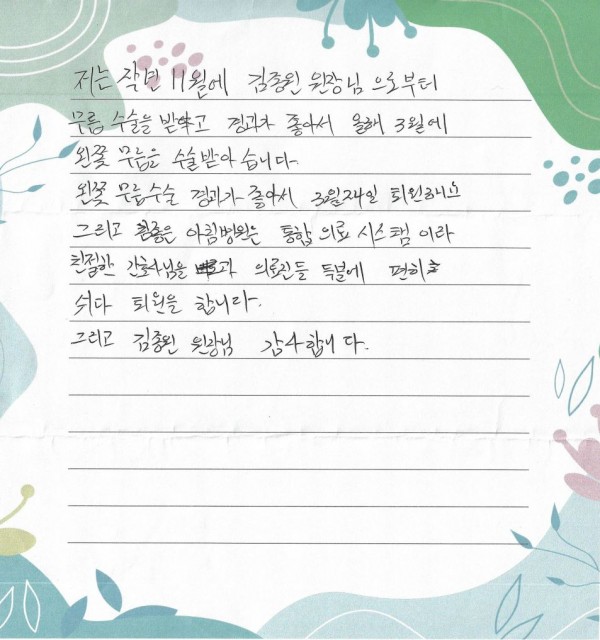 저는 작년 11월에 김종원 원장님 으로부터
무릎 수술을 받았고 경과가 좋아서 올해 3월에
왼쪽 무릎을 수술받아 습니다.
왼쪽 무릎수술 경과가 좋아서 3월24일 퇴원하니요
그리고 좋은 아침병원은 통합 의료 시스템 이라
친절한 간호사님들 과 의료진들 득분에 편히
쉬다 퇴원을 합니다.
그리고 김종원 원장님 감사합니다.